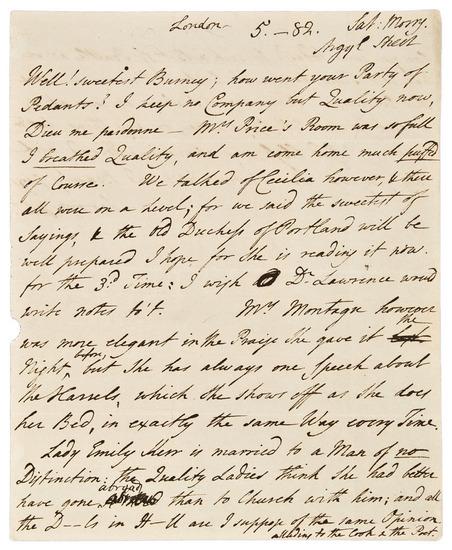 London 5. - 82. Sat: Morng.
Argyl Street
Well! sweetest Burney; how went your Party of
Pedants? I keep no Company but Quality now,
Dieu me pardonne — Mrs Price's Room was so full
I breathed Quality, and am come home much puffed
of Course. We talked of Cecilia however, & there
all were on a Level; for we said the sweetest of
Sayings, & the Old Duchess of Portland will be
well prepared I hope for She is reading it now.
for the 3d. Time: I wish Dr Lawrence would
write notes to't. Mrs Montagu however
was more elegant in the Praise She gave it the
Night before, but She has always one Speech about
the Harrels, which She shows off as She does
her Bed, in exactly the same Way every Time.
Lady Emily Kerr is married to a Man of no
Distinction: the Quality Ladies think She had better
have gone abroad than to Church with him; and all
the D--ls in H-ll are I suppose of the same Opinion
alluding to the Cook & the Poet.